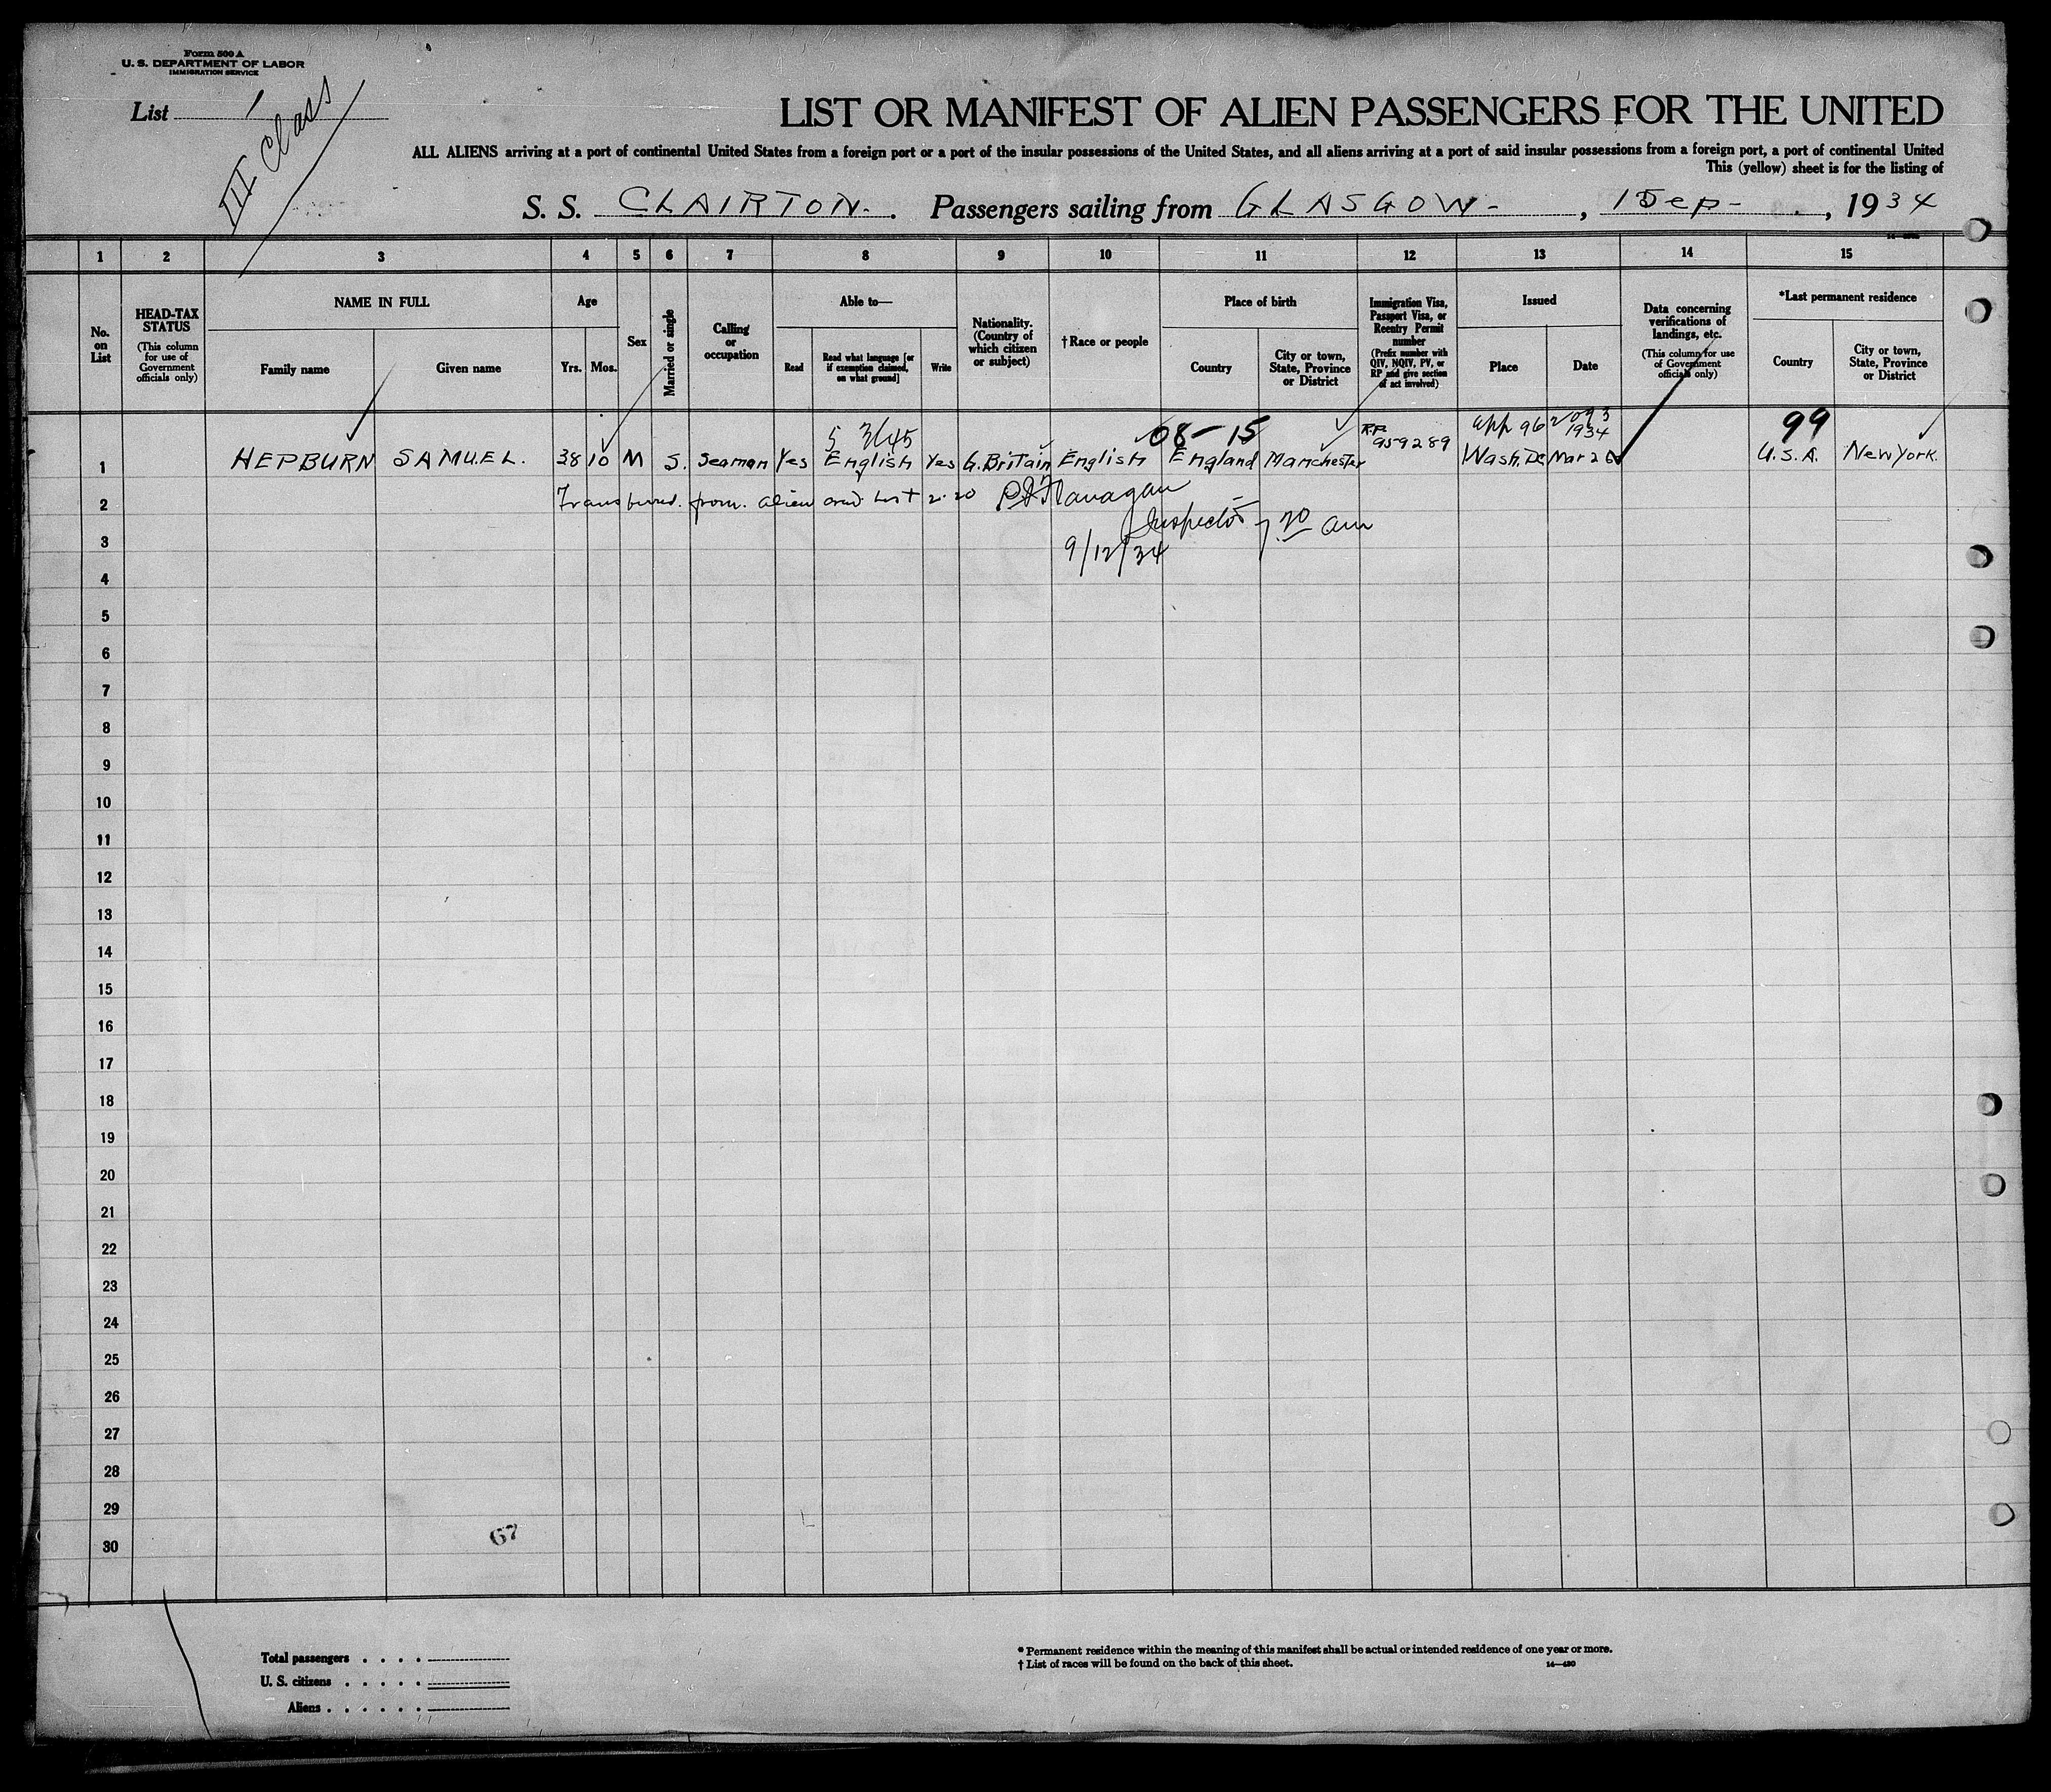 Form 500 A
U. S. DEPARTMENT OF LABOR
IMMIGRATION SERVICE
List 1
III Class
LIST OR MANIFEST OF ALIEN PASSENGERS FOR THE UNITED
ALL ALIENS arriving at a port of continental United States from a foreign port or a port of the insular possessions of the United States, and all aliens arriving at a port of said insular possessions from a foreign port, a port of continental United
This (yellow) sheet is for the listing of
S. S. CLAIRTON. Passengers sailing from GLASGOW-, 1 Sep-, 1934
1 2 3 4 5 6 7 8 9 10 11 12 13 14 15
No. on List
HEAD-TAX STATUS
(This column for use of Government officials only)
NAME IN FULL
Family name Given name
Age
Yrs. Mos.
Sex
Married or single
Calling or occupation
Able to—
Read Read what language [or if exemption claimed, on what ground] Write
Nationality. (Country of which citizen or subject)
† Race or people
Place of birth
Country City or town, State, Province or District
Immigration Visa, Passport Visa, or Reentry Permit number
(Prefix number with QIV, NQIV, PV, or RP and give section of act involved)
Issued
Place Date
Data concerning verifications of landings, etc.
(This column for use of Government officials only)
*Last permanent residence
Country City or town, State, Province or District
5 3/45 08-15 R.P. 959289 1934 99
1 HEPBURN SAMUEL. 38 10 M S. Seaman Yes English Yes G. Britain English England Manchester Wash. DC Mar 26 U.S.A. New York.
2 Transferred from alien crew list 2. 20 Flanagan
Inspector 7 20 am
3 9/12/34
4
5
6
7
8
9
10
11
12
13
14
15
16
17
18
19
20
21
22
23
24
25
26
27
28
29
67
30
Total passengers . . . .
U. S. citizens . . . . .
Aliens . . . . . .
* Permanent residence within the meaning of this manifest shall be actual or intended residence of one year or more.
† List of races will be found on the back of this sheet.
14—430